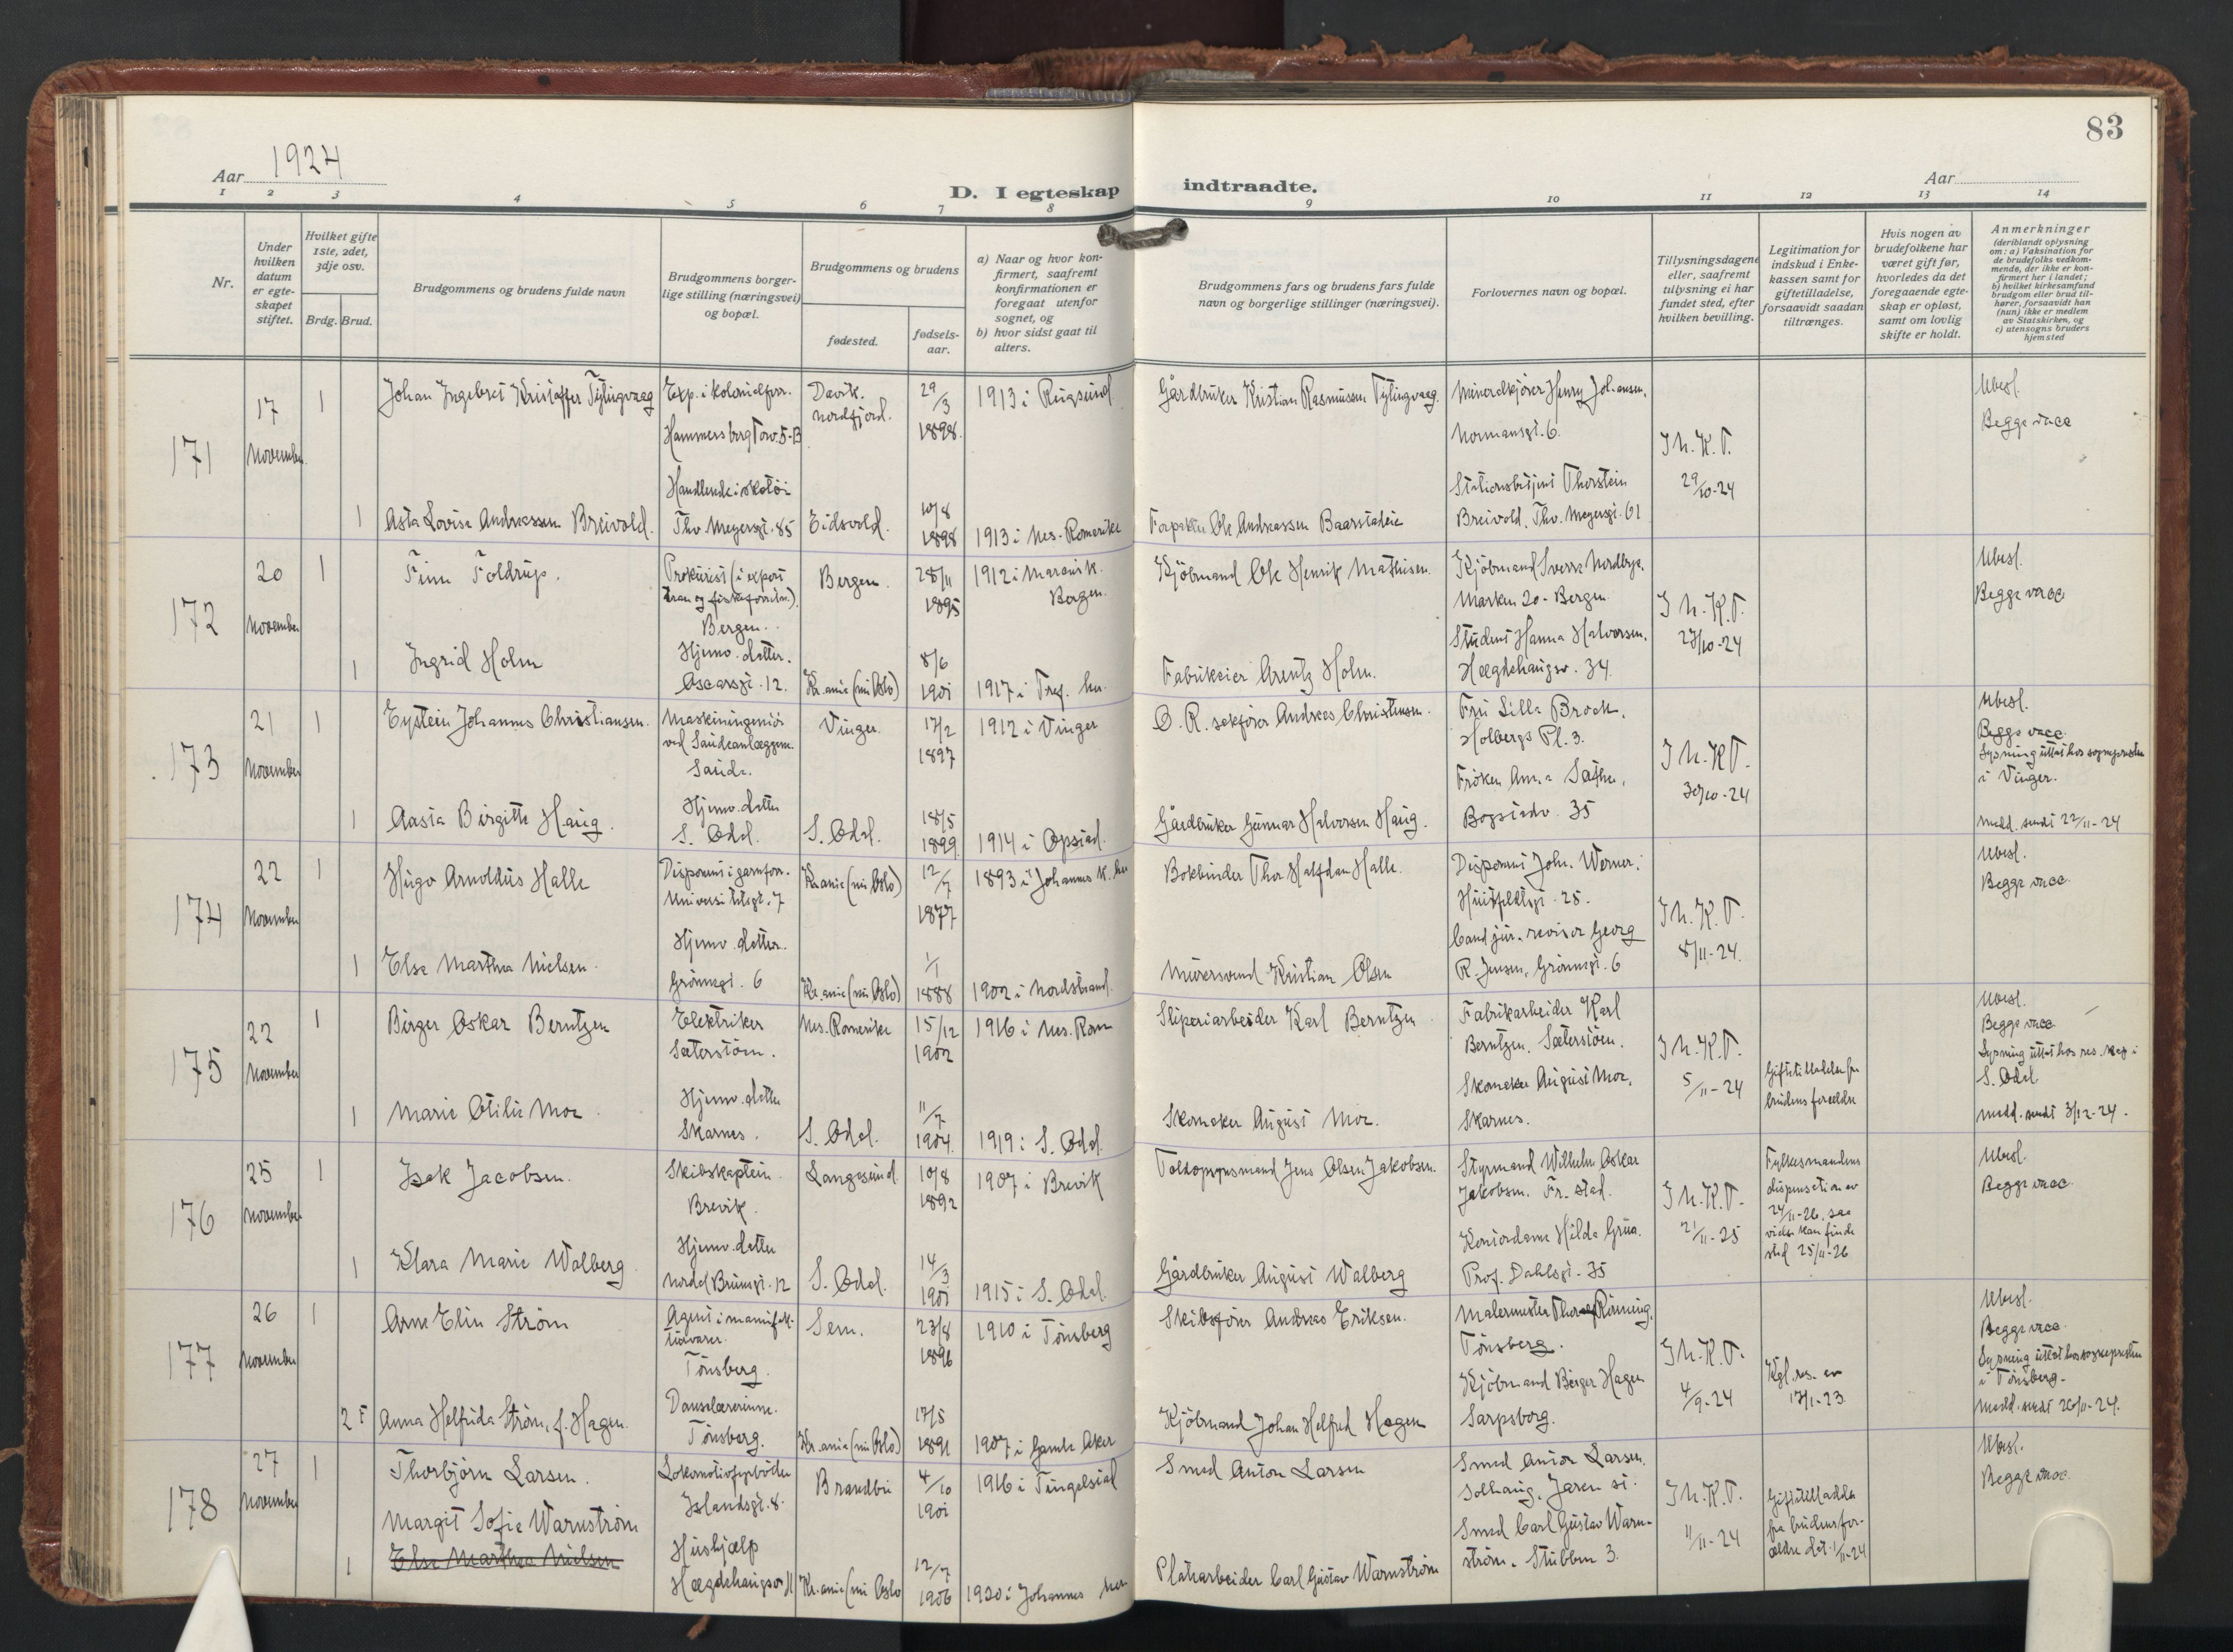 83
Aar 1924
D. I egteskap indtraadte.
Aar
1 2 3 4 5 6 7 8 9 10 11 12 13 14
Nr.
Under hvilken datum er egteskapet stiftet.
Hvilket gifte 1ste, 2det, 3dje osv.
Brdg. Brud.
Brudgommens og brudens fulde navn
Brudgommens borgerlige stilling (næringsvei) og bopæl.
Brudgommens og brudens
fødested.
fødselsaar.
a) Naar og hvor konfirmert, saafremt konfirmationen er foregaat utenfor sognet, og
b) hvor sidst gaat til alters.
Brudgommens fars og brudens fars fulde navn og borgerlige stillinger (næringsvei).
Forlovernes navn og bopæl.
Tillysningsdagene eller, saafremt tillysning ei har fundet sted, efter hvilken bevilling.
Legitimation for indskud i Enkekassen samt for giftetilladelse, forsaavidt saadan tiltrænges.
Hvis nogen av brudefolkene har været gift før, hvorledes da det foregaaende egteskap er opløst, samt om lovlig skifte er holdt.
Anmerkninger
(deriblandt oplysning om: a) Vaksination for de brudefolks vedkommende, der ikke er konfirmert her i landet;
b) hvilket kirkesamfund brudgom eller brud tilhører, forsaavidt han (hun) ikke er medlem av Statskirken, og
c) utensogns bruders hjemsted
171
17 November
1
Johan Ingebret Kristoffer Tytingvaag
Exp. i kolonialforr.
Hammersborg Torv 5-B
Davik. Nordfjord.
29/3 1898.
1913 i Rugsund
Gårdbruker Kristian Rasmussen Tytingvaag.
Mineralkjører Henry Johansen,
Normansgt. 6.
J. N. K. T.
29/10-24
Ubesl.
Begge vacc
1
Asta Lovise Andreassen Breivold.
Handlende i skotöi
Thv. Meyersgt. 85
Eidsvold.
10/8 1898
1913 i Nes-Romerike
Forpakter Ole Andreassen Baarstadeie
Stationsbetjent Thorstein
Breivold, Thv. Meyersgt. 61
172
20 November
1
Finn Foldrup.
Prokurist (i export
tran og fiskeforretn.)
Bergen.
Bergen.
28/11 1895
1912 i Mariæ k.
Bergen.
Kjöbmand Ole Henrik Mathisen.
Kjöbmand Sverre Nordbye.
Marken 20 - Bergen.
J. N. K. T.
27/10-24
Ubesl.
Begge vacc
1
Ingrid Holm
Hjemv. datter.
Oscarsgt. 12.
Kr.ania (nu Oslo)
8/6 1901
1917 i Tref. her.
Fabrikeier Arentz Holm.
Student Hanna Halvorsen.
Hægdehaugsv. 34.
173
21 November
1
Eystein Johannes Christiansen.
Maskiningeniör
ved Saudeanlæggene.
Sauda.
Vinger.
17/2 1897
1912 i Vinger
O. R. sakförer Andreas Christensen.
Fru Silla Brock.
Holbergs Pl. 3.
J. N. K. T.
30/10-24
Ubesl.
Begge vacc
Lysning uttat hos sogneprsten
i Vinger.
1
Aasta Birgitte Haug.
Hjemv. datter
S. Odal.
S. Odal.
18/5 1899
1914 i Opstad.
Gårdbruker Gunnar Halvorsen Haug.
Fröken Anna Sæther,
Bogstadv. 35
medd. sendt 22/11-24
174
22 November
1
Hugo Arnoldus Halle
Disponent i garnforr.
Universitetsgt. 7
Kr.ania (nu Oslo)
12/7 1877
1893 i Johannes k. her
Bokbinder Thor Halfdan Halle.
Disponent Johs. Werner.
Huitfeldtsgt. 25.
J. N. K. T.
8/11-24.
Ubesl.
Begge vacc.
1
Else Marthea Nielsen.
Hjemv. datter.
Grönnegt. 6
Kr.ania (nu Oslo)
1/1 1888
1902 i Nordstrand.
Murersvend Kristian Olsen
Cand jur. revisor Georg
R. Jensen, Grönnegt. 6
175
22 November
1
Birger Oskar Berntzen
Elektriker
Sæterstöen.
Nes. Romerike
15/12 1902
1916 i Nes. Rom
Sliperiarbeider Karl Berntzen
Fabrikarbeider Karl
Berntzen. Sæterstöen.
J. N. K. T.
5/11-24
Giftetilladelse fra
brudens forældre
Ubesl.
Begge vacc
Lysning uttat hos res. kap i
S. Odal.
medd. sendt 3/12-24.
1
Marie Otilie Mor.
Hjemv. datter
Skarnes.
S. Odal.
11/7 1904
1919 i S. Odal
Skomaker August Mor.
Skomaker August Mor,
Skarnes.
176
25 November
1
Isak Jacobsen.
Skibskaptein.
Brevik.
Langesund
10/8 1892
1907 i Brevik
Toldopsynsmand Jens Olsen Jakobsen.
Styrmand Wilhelm Oskar
Jakobsen. Fr.stad.
J. N. K. T.
21/11-25
Fylkesmandens
dispensation av
24/11-26. saa
vielse kan finde
sted 25/11-26
Ubesl.
Begge vacc.
1
Klara Marie Walberg.
Hjemv. datter
Nordal Brunsgt. 12
S. Odal.
14/3 1901
1915 i S. Odal.
Gårdbruker August Walberg
Kontordame Hilda Grua.
Prof. Dahlsgt. 35
177
26 November
1
Arne Elin Ström
Agent i manufakturvarer.
Tönsberg.
Sem.
23/8 1896
1910 i Tönsberg
Skibsförer Andreas Eriksen.
Malermester Thoralf Rönning.
Tönsberg.
J. N. K. T.
4/9-24
Kgl. res. av
17/1-23.
Ubesl.
Begge vacc
Lysning uttat hos sogneprsten
i Tönsberg.
medd. sendt 26/11-24.
2 F
Anna Helfrida Ström, f. Hagen.
Danselærerinne.
Tönsberg.
Kr.ania (nu Oslo)
17/5 1891
1907 i Gamle Aker
Kjöbmand Johan Helfred Hagen
Kjöbmand Birger Hagen
Sarpsborg.
178
27 November
1
Thorbjörn Larsen.
Lokomotivfyrböter
Islandsgt. 8.
Brandbu
4/10 1901
1916 i Tingelstad
Smed Anton Larsen
Smed Anton Larsen.
Solhaug. Jaren st.
J. N. K. T.
11/11-24
Giftetilladelse
fra brudens forældre dat. 1/11-24
Ubesl.
Begge vacc.
Margit Sofie Warnström
Else Marthea Nielsen
1
Hushjælp
Hægdehaugsv 11
Kr.ania (nu Oslo
12/7 1906
1920 i Johannes her
Platearbeider Carl Gustav Warnström
Smed Carl Gustav Warnström. Stubben 3.